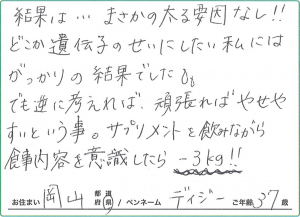 結果は… まさかの太る要因なし!!
どこか遺伝子のせいにしたい私には
がっかりの結果でした。
でも逆に考えれば、頑張ればやせや
すいという事。サプリメントを飲みながら
食事内容を意識したら −3kg!!
お住まい 岡山 都道府県 / ペンネーム デイジー ご年齢 37歳